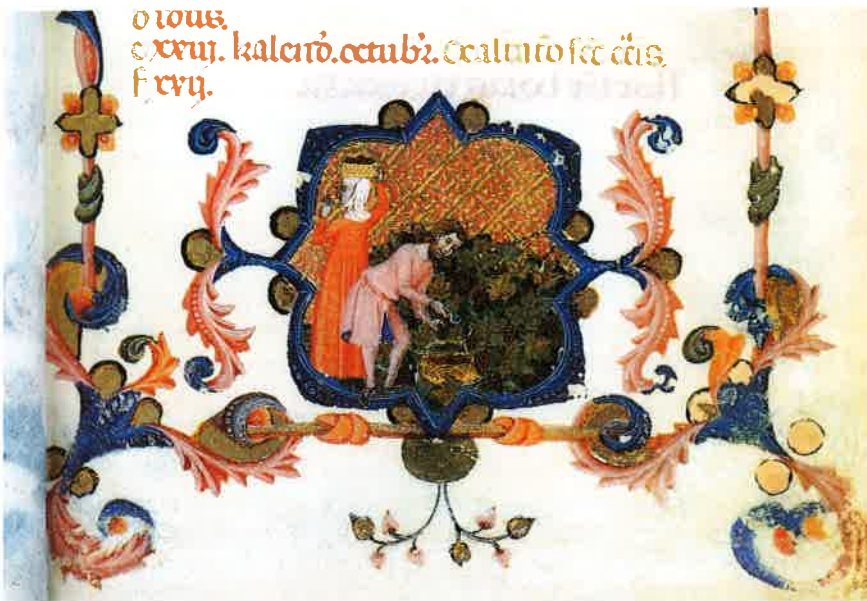 d idus.
e xviij. kalend. octubr. Exaltatio sce crucis.
f xvij.